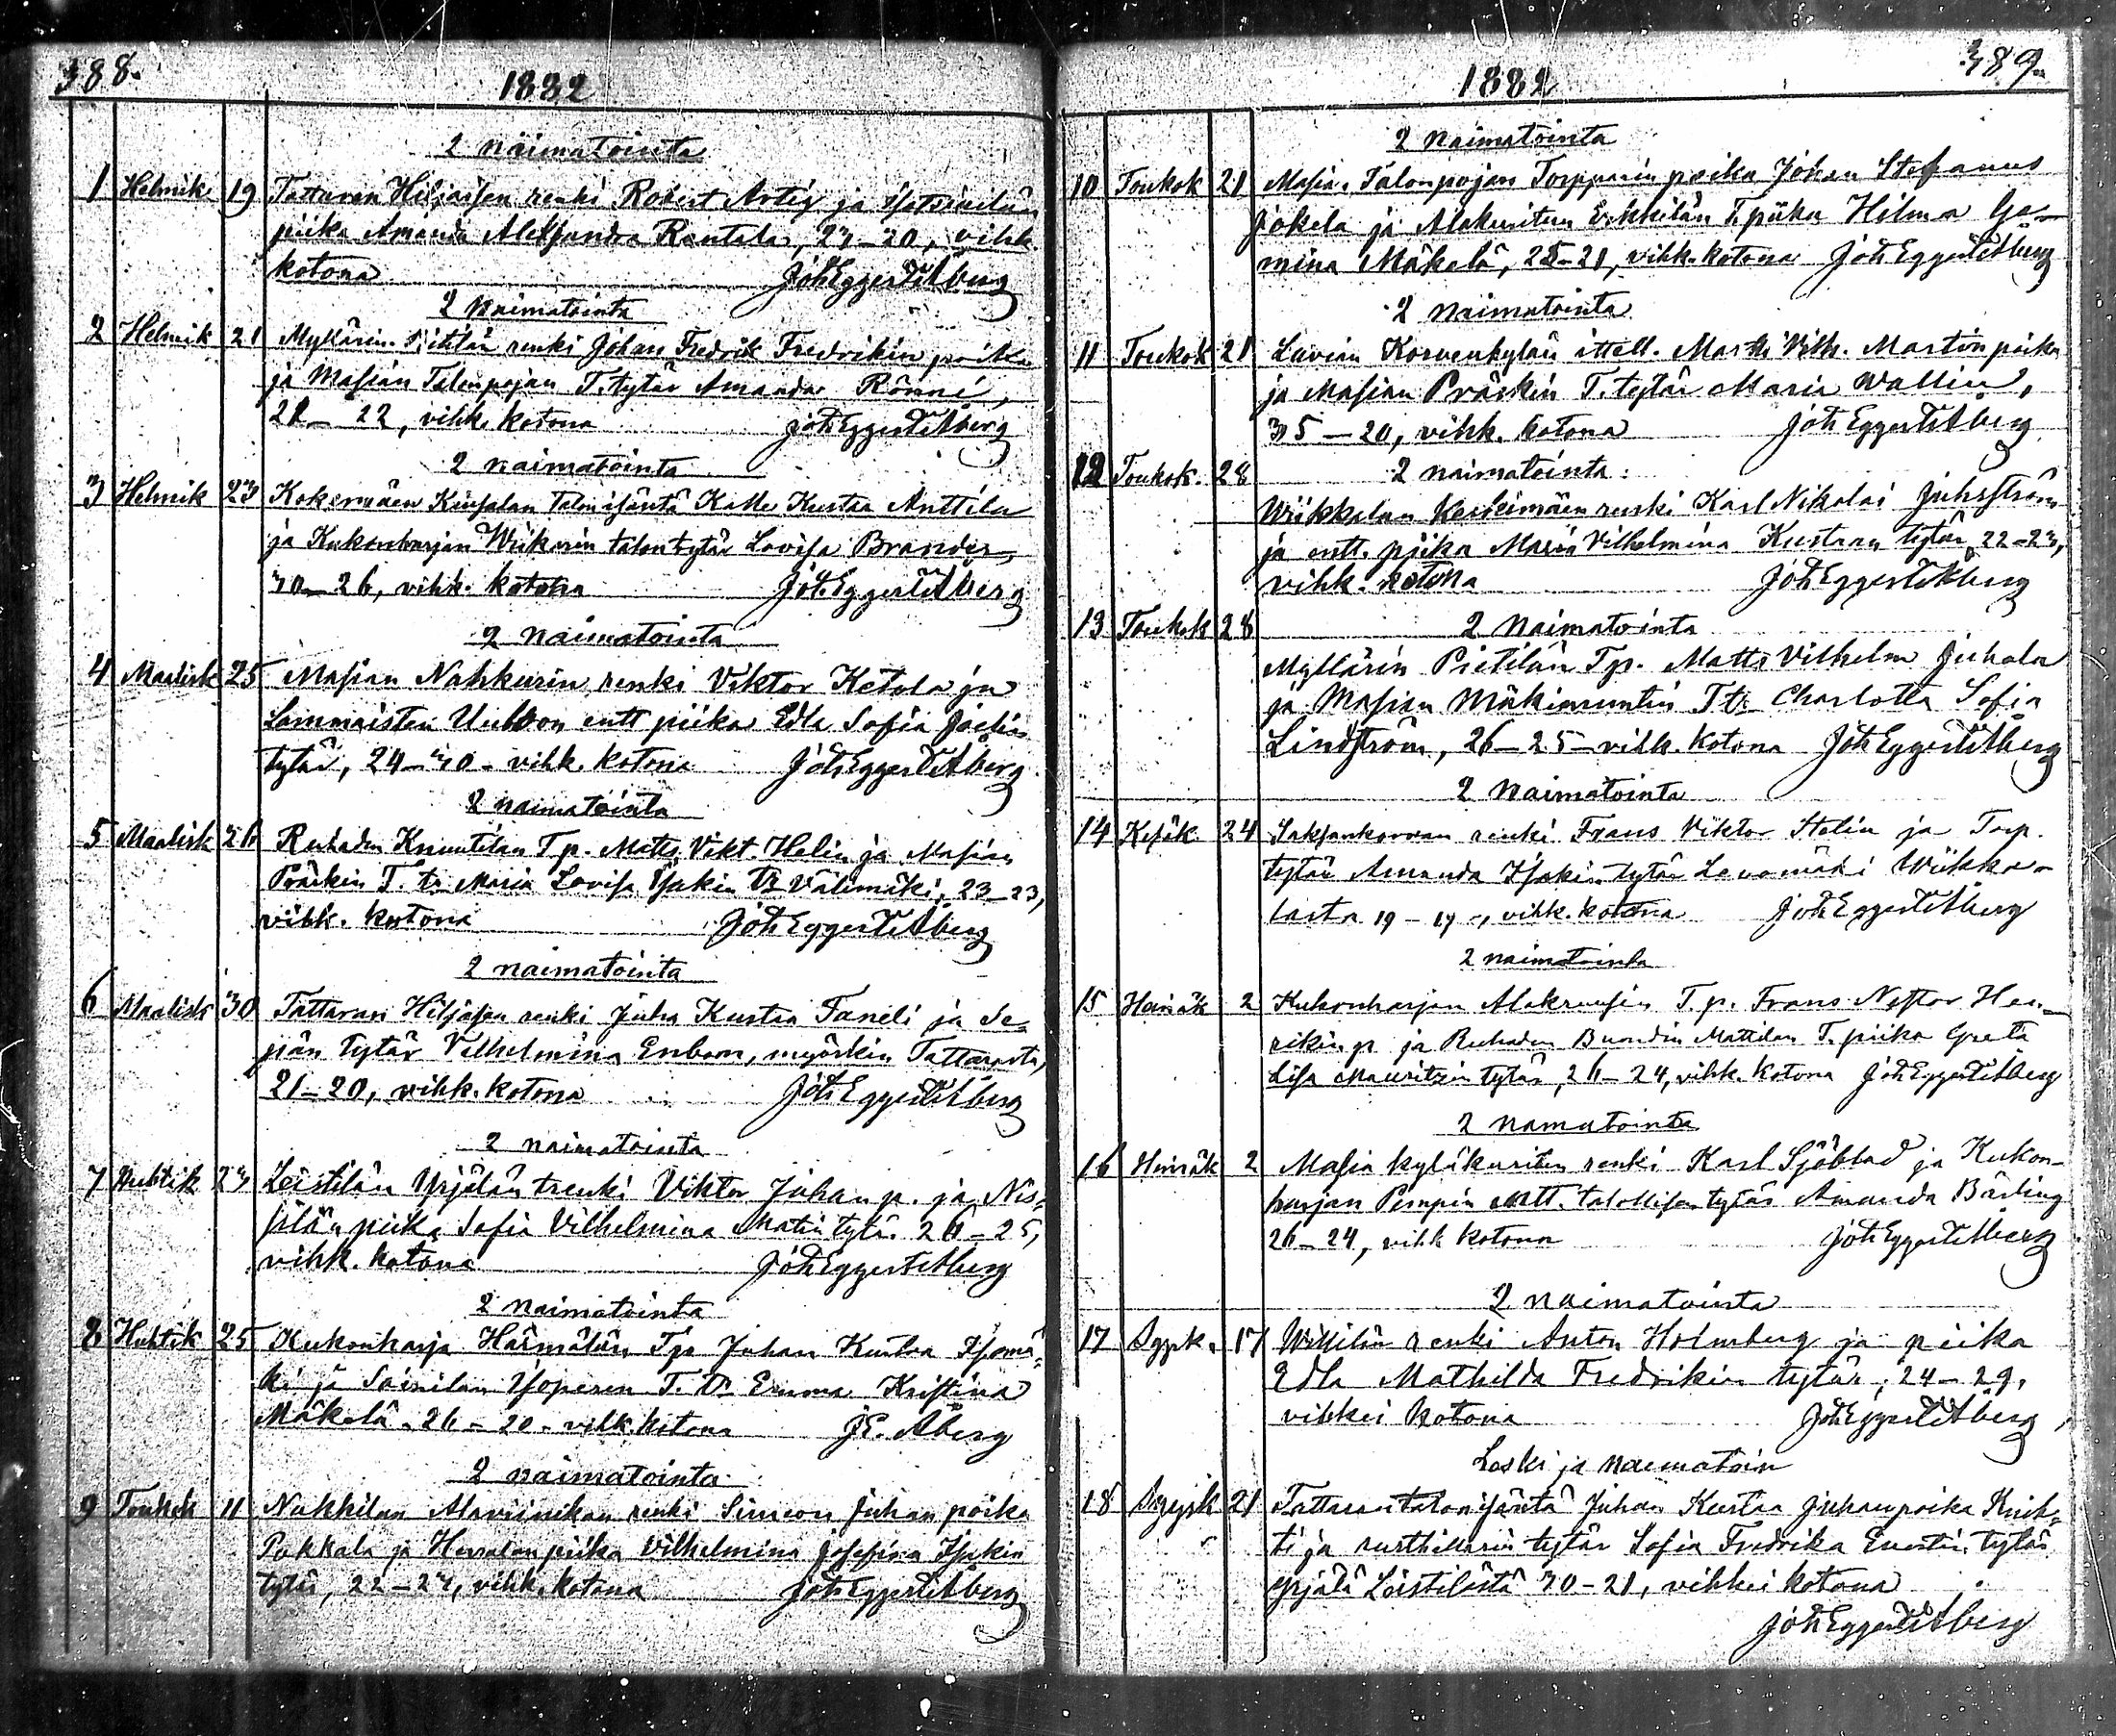 388.
1882
2 naimatointa
1 Helmik 19 Tattaran Hiljaisen renki Robert Artig ja
piika Amanda Aleksandra Rantala, 23-20, vihk.
kotona Joh Eggert Åberg
2 Naimatointa
2 Helmik 21 Myllärin renki Johan Fredrik Fredrikin poika
ja Masian Talonpojan T. tytär Amanda Rönni,
22, vihk. kotona Joh Eggert Åberg
2 naimatointa
3 Helmik 23 Kokemäen talonisäntä Kalle Kustaa Anttila
ja Kukonharjan Wiikarin talontytär Lovisa Brander,
30-26, vihk. kotona Joh Eggert Åberg
2 Naimatointa
4 Maalisk 25 Masian Nahkurin renki Viktor Ketola ja
Lammaisten entt piika Edla Sofia
tytär, 24-30- vihk. kotona Joh Eggert Åberg
2 naimatointa
5 Maalisk 26 Ruhaden Knuutilan T p. Matts Vikt. Helin ja Masian
Präskin T. tr Maria Lovisa Isakin tr Välimäki, 23-23,
vihk. kotona Joh Eggert Åberg
2 naimatointa
6 Maalisk 30 Tattaran Hiljaisen renki Juha Kustaa Taneli ja Se-
pän tytär Vilhelmina Enbom, myöskin Tattarasta,
21-20, vihk. kotona Joh Eggert Åberg
2 naimatointa
7 Huhtik 23 Leistilän Yrjälän trenki Viktor Juhan p. ja
piika Sofia Vilhelmina Matin tytä. 26-25,
vihk. kotona Joh Eggert Åberg
2 naimatointa
8 Huhtik 25 Kukonharja Härmälän Tp. Juhan Kustaa Isomä-
ki ja Soinilan Isoperen T. tr Emma Kristina
Mäkelä. 26-20- vihk. kotona J E. Åberg
2 naimatointa
9 Toukok 11 Nakkilan Alaviinikan renki Simeon Juhan poika
Pakkala ja piika Vilhelmina Josefina Isakin
tytär, 22-23, vihk. kotona Joh Eggert Åberg
389.
1882
2 Naimatointa
10 Toukok 21 Masia. Talonpojan Torpparin poika Johan Stefanus
Jokela ja Erkkilän T. piika Hilma Ge-
mina Mäkelä, 25-21, vihk. kotona Joh Eggert Åberg
2 Naimatointa
11 Toukok 21 Lavian Korvenkylän ittell. Vilh. Martin poika
ja Masian Präskin T. tytär Maria Wallin,
35-20, vihk. kotona Joh Eggert Åberg
12 Toukok. 28 2 naimatointa
Wiikkalan Keskimäen renki Karl Nikolai Juhsström
ja entt. piika Maria Vilhelmina Kustaan tytär, 22-23,
vihk. kotona Joh Eggert Åberg
13 Toukok 28 2 Naimatointa
Myllärin Pietilän Tp. Matts Vilhelm Juhala
ja Masian T tr Charlotta Sofia
Lindström, 26-25- vihk. kotona Joh Eggert Åberg
2 Naimatointa
14 Kesäk 24 renki Frans Viktor Stolin ja Torp.
tytär Amanda Isakin tytär Wiikka-
lasta 19-19-, vihk. kotona Joh Eggert Åberg
2 naimatointa
15 Heinäk 2 Kukonharjan T. p. Frans Nestor Hen-
rikin p ja Ruhaden Mattilan T. piika Greta
Lisa Mauritzin tytär, 26-24, vihk. kotona Joh Eggert Åberg
2 namatointa
16 Heinäk 2 Masia renki Karl Sjöblad ja Kukon-
harjan Pempin entt. talollisen tytär Amanda Bärling
26-24, vihk kotona Joh Eggert Åberg
2 naimatointa
17 Syysk. 17 Willilän renki Anton Holmberg ja piika
Edla Mathilda Fredrikin tytär, 24-29,
vihkei kotona Joh Eggert Åberg
Leski ja naimatoin
18 Syysk 21 Tattaran talonisäntä Juhan Kustaa Juhanpoika Knih-
ti ja rusthollarin tytär Sofia Fredrika Enertin tytär
Yrjälä Leistilästä 30-21, vihkei kotona
Joh Eggert Åberg